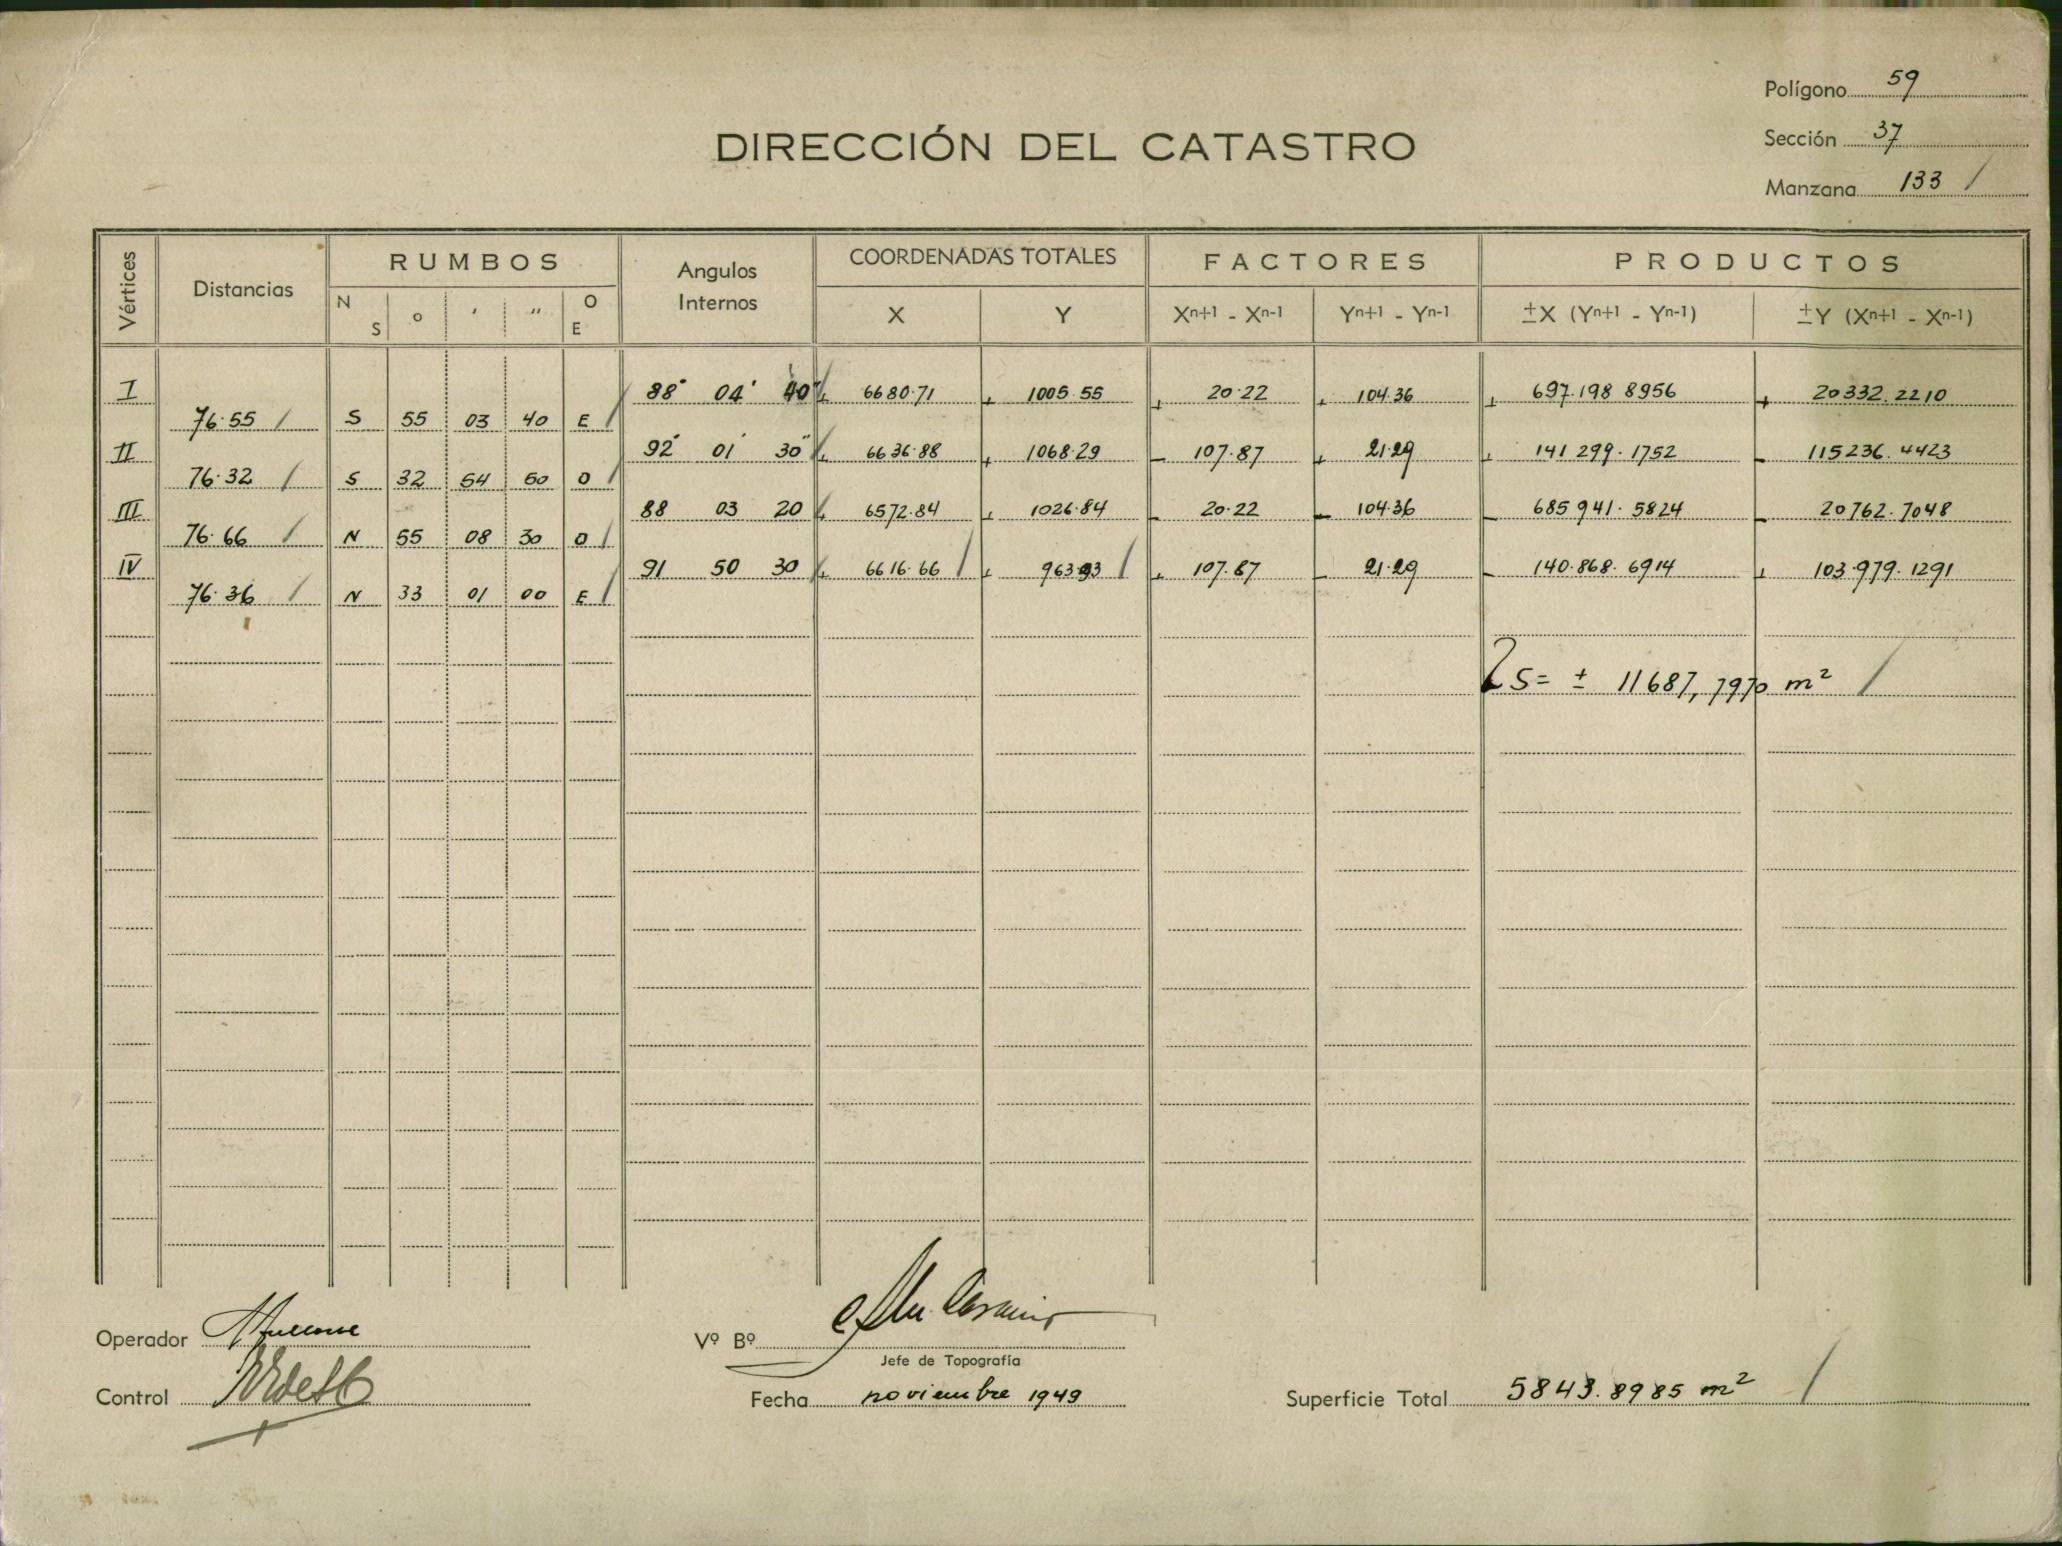 Polígono 59
Sección 37
Manzana 133 /
DIRECCIÓN DEL CATASTRO
Vértices Distancias RUMBOS Angulos Internos COORDENADAS TOTALES FACTORES PRODUCTOS
N S o ' " O E X Y Xn+1 - Xn-1 Yn+1 - Yn-1 ±X (Yn+1 - Yn-1) ±Y (Xn+1 - Xn-1)
I 88° 04' 40" + 6680.71 + 1005.55 + 20.22 + 104.36 + 697.198 8956 + 20332.2210
76.55 / S 55 03 40 E /
II 92° 01' 30" + 6636.88 + 1068.29 - 107.87 + 21.29 + 141 299.1752 - 115236.4423
76.32 / S 32 54 50 O /
III 88 03 20 + 6572.84 + 1026.84 - 20.22 - 104.36 - 685 941.5824 - 20762.7048
76.66 / N 55 08 30 O /
IV 91 50 30 + 6616.66 / + 963.93 / + 107.87 - 21.29 - 140.868.6914 + 103.979.1291
76.36 / N 33 01 00 E /
2S= ± 11687,7970 m² /
Operador
Vº Bº
Jefe de Topografía
Control
Fecha noviembre 1949
Superficie Total 5843.8985 m² /